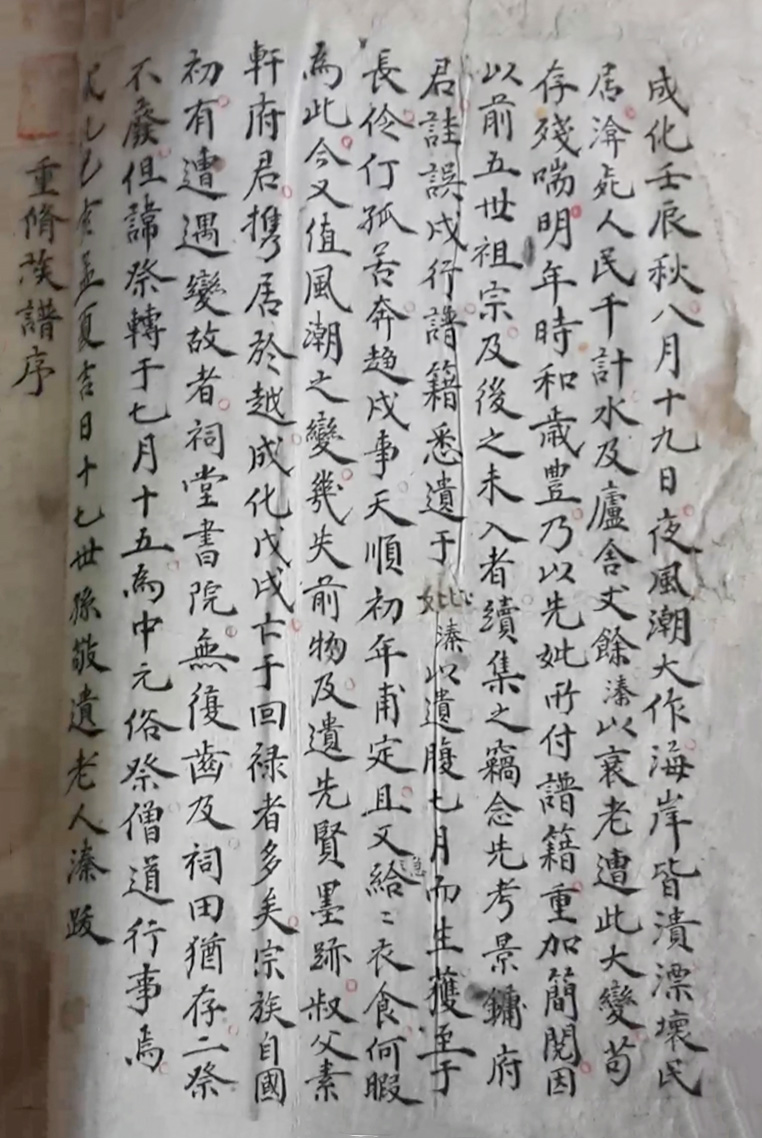 成化壬辰秋八月十九日夜風潮大作海岸皆潰漂壞民
居渰死人民千計水及廬舍丈餘溱以衰老遭此大變苟
存殘喘明年時和歲豊乃以先妣所付譜籍重加簡閱因
以前五世祖宗及後之未入者續集之竊念先考景鏞府
君詿誤戍行譜籍悉遺于妣溱以遺腹七月而生獲至于
長伶仃孤苦奔趋戍事天順初年甫定且又給〻衣食何暇
為此今又值風潮之變幾失前物及遺先賢墨跡叔父素
軒府君携居於越成化戊戌亡于回禄者多矣宗族自國
初有遭遇變故者祠堂書院無復齒及祠田猶存二祭
不廢但諱祭轉于七月十五為中元俗祭僧道行事焉
孟夏吉日十七世孫敬遺老人溱跋
重脩族譜序